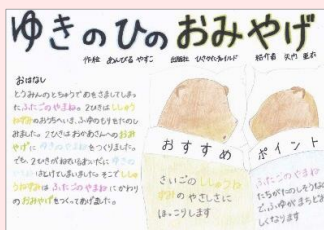 ゆきのひのおみやげ
作絵 あんびる やすこ 出版社 ひさかたチャイルド 紹介者
おはなし
とうみんのとちゅうでめをさましてしまっ
たふたごのやまね。2ひきはししゅう
ねずみのおうちへいき、ふゆのもりをたのし
みました。2ひきはおかあさんへのおみ
やげにゆきのやまねをつくりました。
でも、2ひきがねむるまえにゆきの
はとけてしまいました。そこでししゅ
うねずみはふたごのやまねにかわり
のおみやげをつくってあげました。
おすすめ
ポイント
さいごのししゅうね
ずみのやさしさに
ほっこりします
ふたごのやまね
たちがたのしそうな
ど、ふゆがまちどお
しくなります